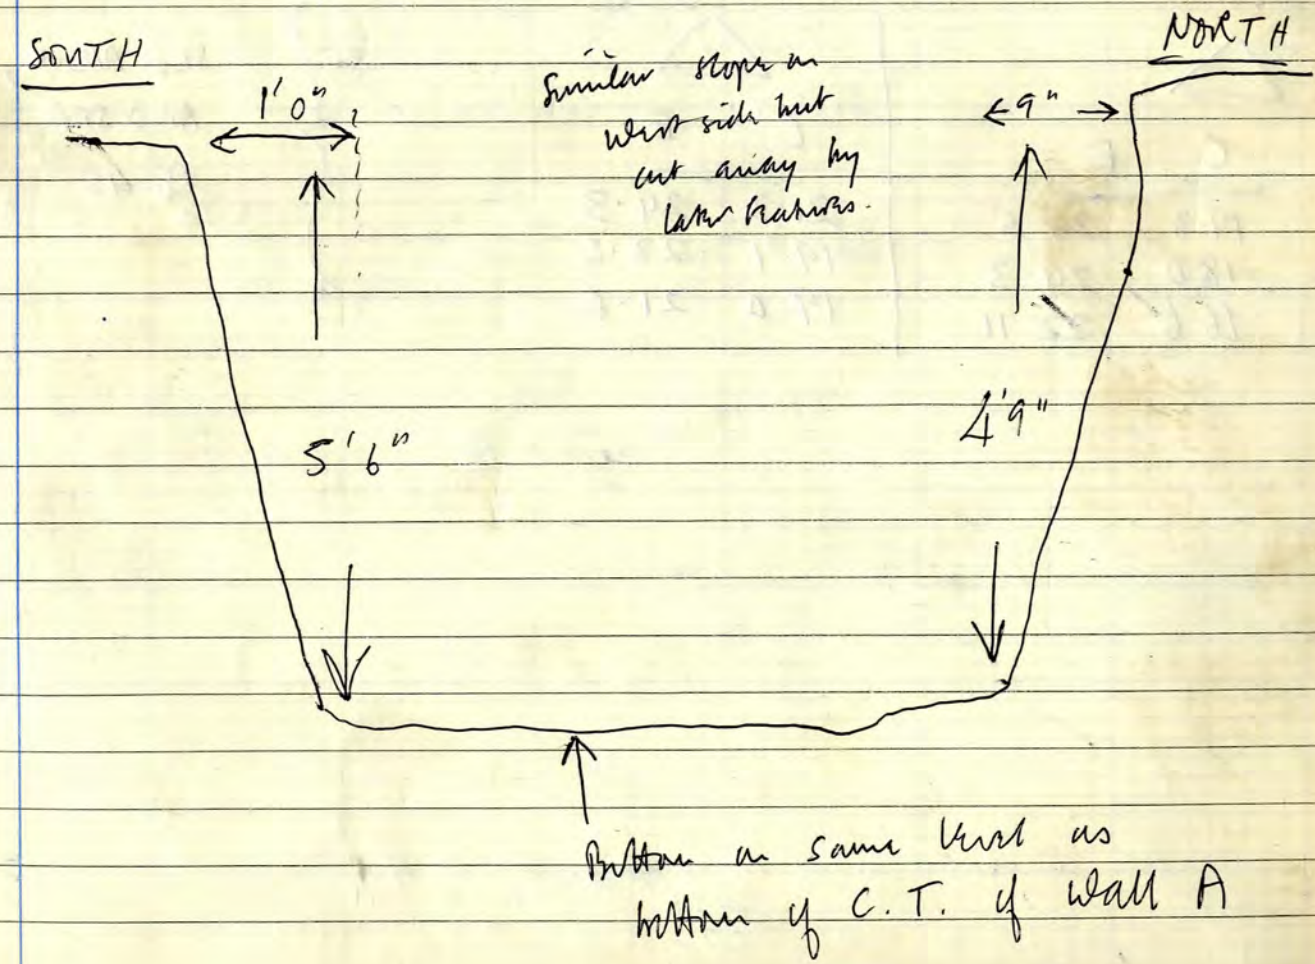 SOUTH
NORTH
1'0"
Similar slope on
West side but
cut away by
later features.
9"
5'6"
4'9"
Bottom on same level as
bottom of C.T. of Wall A